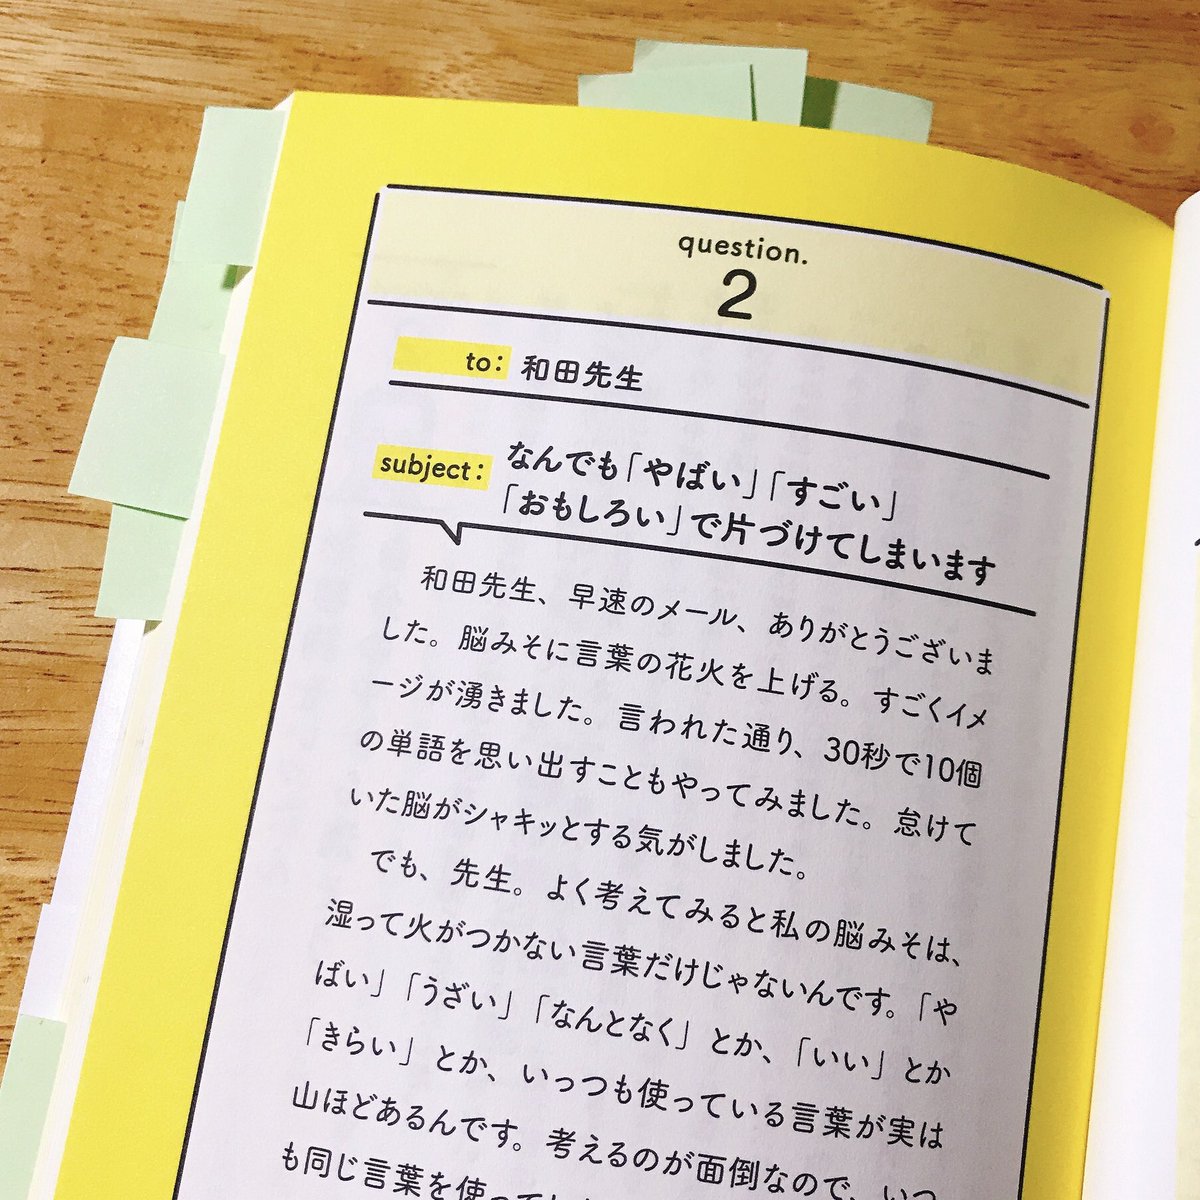 question.
2
to: 和田先生
subject: なんでも「やばい」「すごい」
「おもしろい」で片づけてしまいます
和田先生、早速のメール、ありがとうございま
した。脳みそに言葉の花火を上げる。すごくイメ
ージが湧きました。言われた通り、30秒で10個
の単語を思い出すこともやってみました。怠けて
いた脳がシャキッとする気がしました。
でも、先生。よく考えてみると私の脳みそは、
湿って火がつかない言葉だけじゃないんです。「や
ばい」「うざい」「なんとなく」とか、「いい」とか
「きらい」とか、いっつも使っている言葉が実は
山ほどあるんです。考えるのが面倒なので、いつ
も同じ言葉を使って